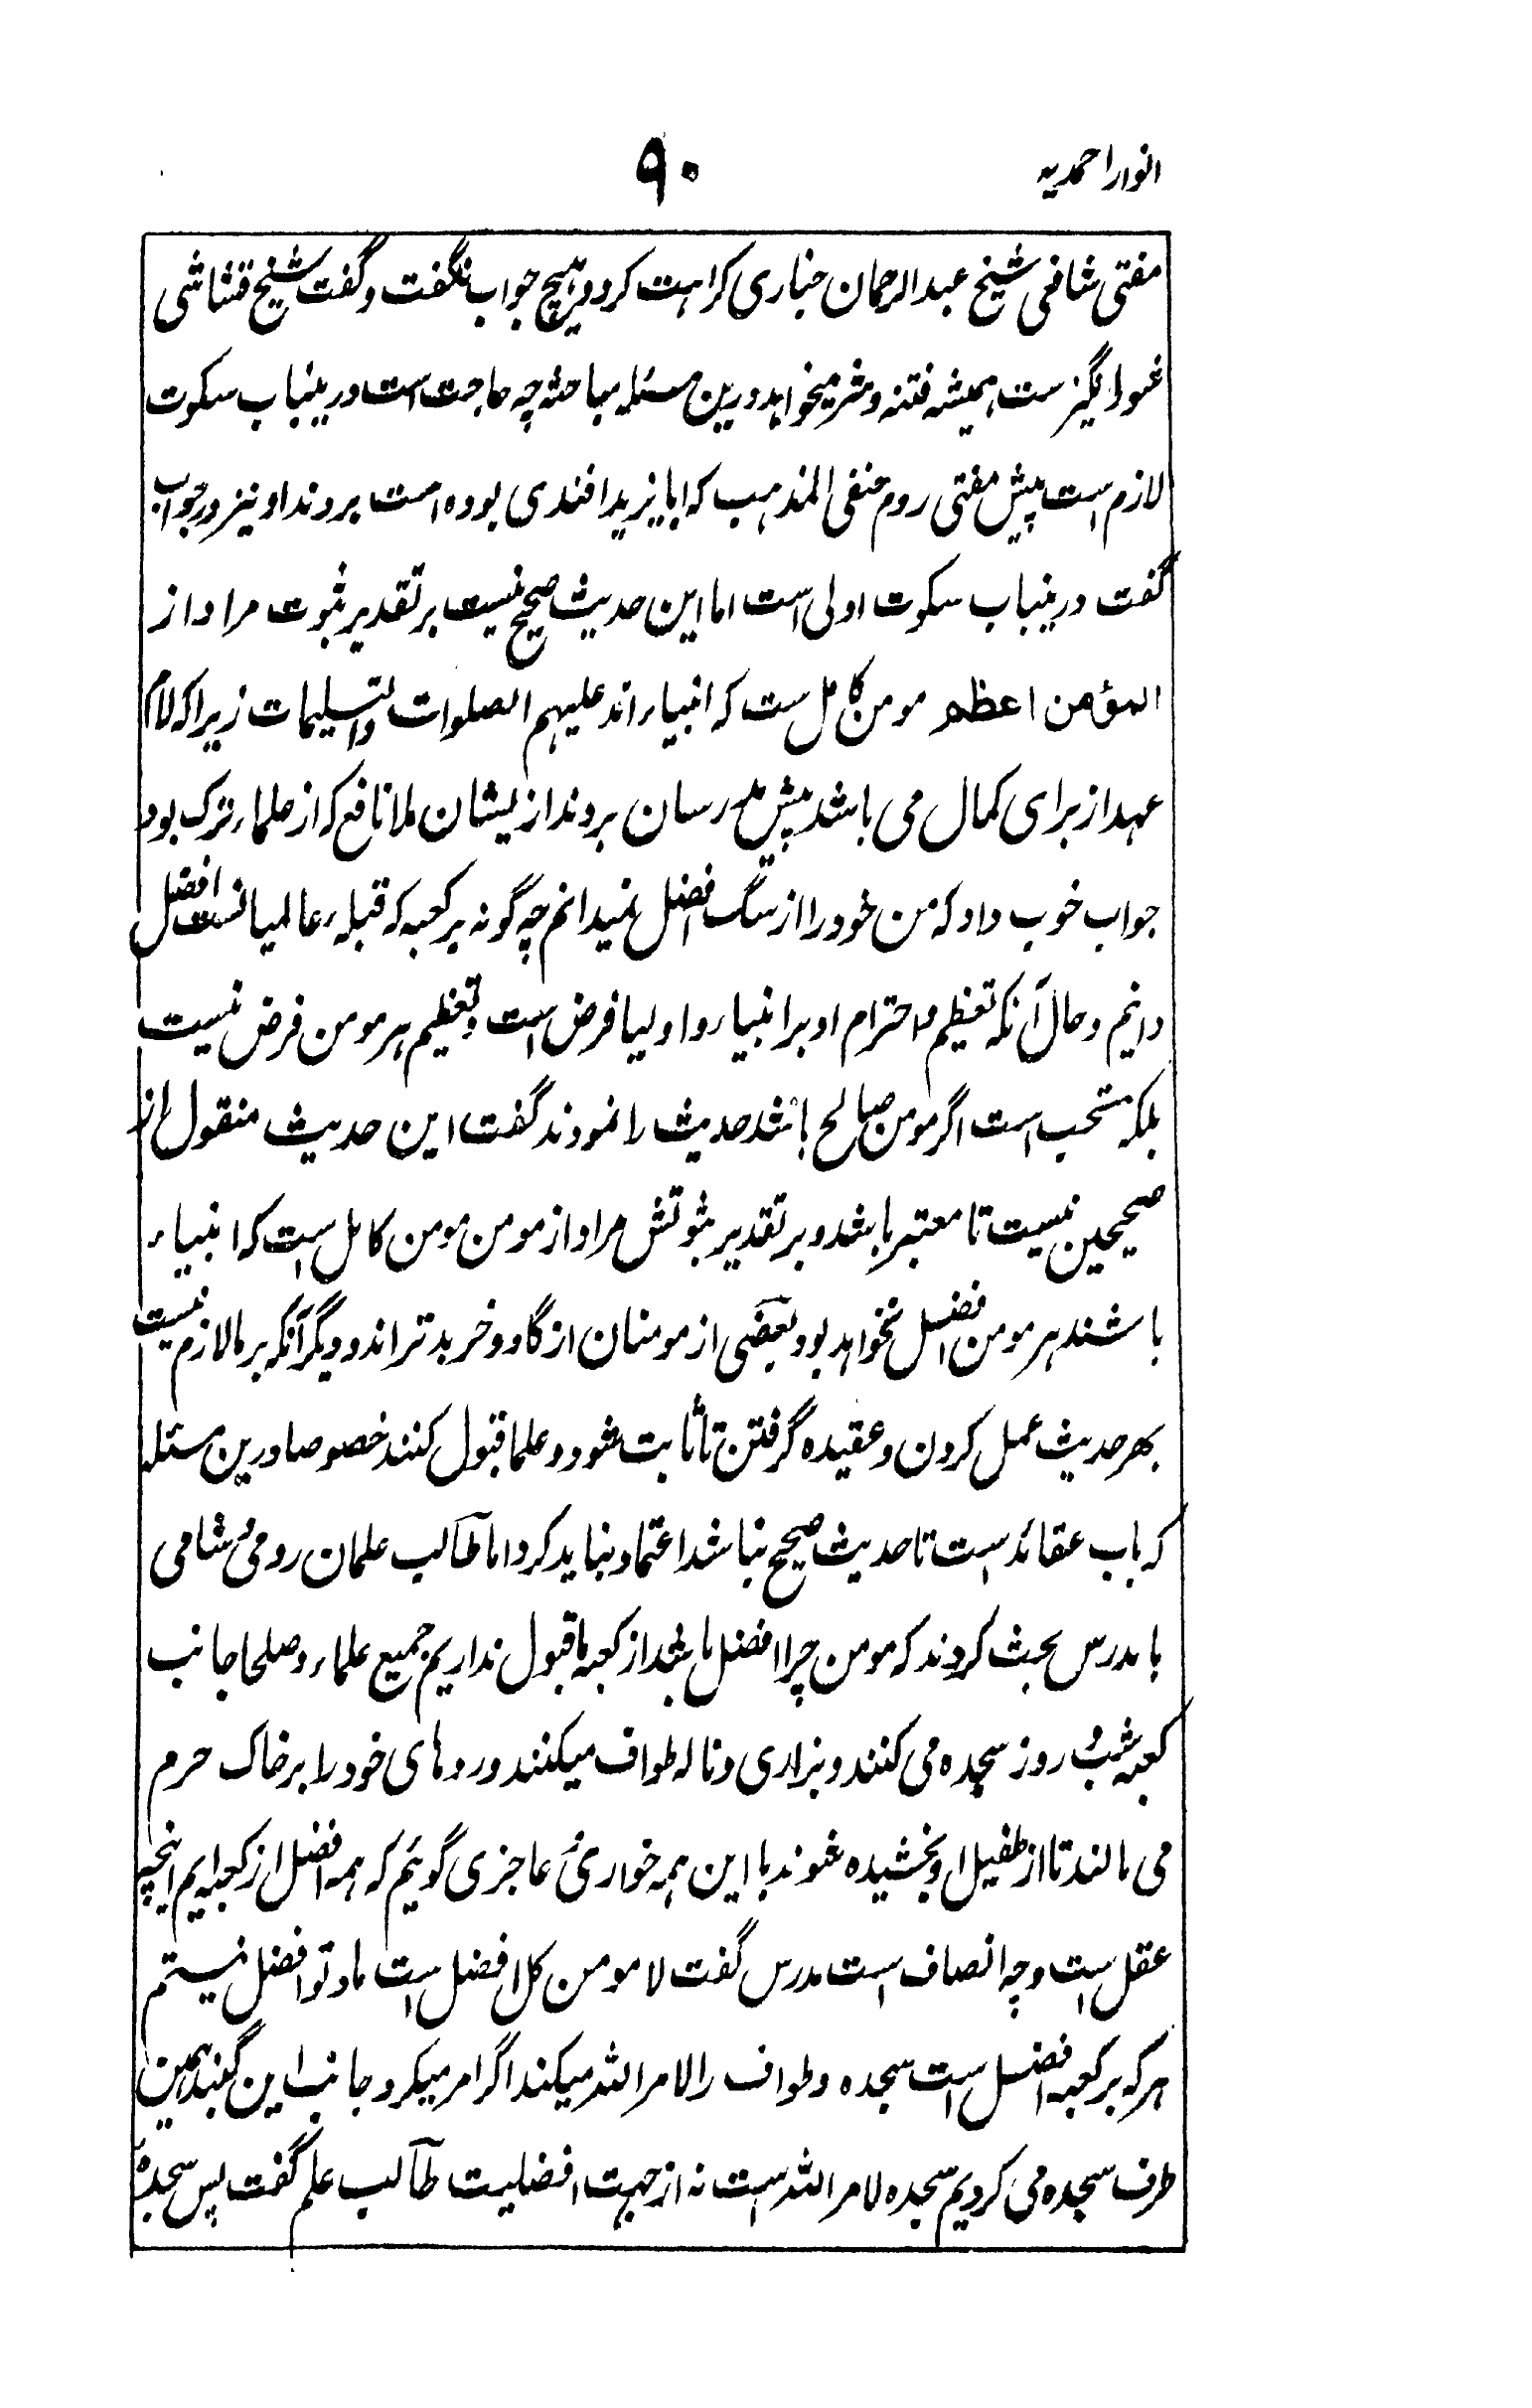 انوار احمدیہ
۹۰
مفتی شافعی شیخ عبدالرحمان خباری کراہت کرد و ہیچ جواب نگفت و گفت شیخ قشاشی
غوا انگیز ست ہمیشہ فتنہ و شر میخواہد درین مسئلہ مباحثہ چہ حاجت است درینباب سکوت
لازم است پیش مفتی روم حنفی المذہب کہ ابایزید افندی بودہ است بروند او نیز در جواب
گفت درینباب سکوت اولی است اما این حدیث صحیح نیست بر تقدیر ثبوت مراد از
المؤمن اعظم مومن کامل ست کہ انبیاء اند علیہم الصلوات والتسلیمات زیرا کہ لام
عہد از برای کمال می باشد پیش مدرسان بروند ازیشان ملا نافع کہ از علماء ترک بود
جواب خوب داد کہ من خود را از سگ افضل نمیدانم چہ گونہ بر کعبہ کہ قبلہء عالمیانست افضل
دانیم و حال آنکہ تعظیم و احترام او بر انبیاء و اولیا فرض است و تعظیم ہر مومن فرض نیست
بلکہ مستحب است اگر مومن صالح باشد حدیث را نمودند گفت این حدیث منقول از
صحیحین نیست تا معتبر باشد و بر تقدیر ثبوتش مراد از مومن مومن کامل است کہ انبیاء
باشند ہر مومن افضل نخواہد بود بعضی از مومنان از گاو و خر بدتر اند و دیگر آنکہ بر ما لازم نیست
بهر حدیث عمل کردن و عقیدہ گرفتن تا ثابت شود و علما قبول کنند خصوصا درین مسئلہ
کہ باب عقائد است تا حدیث صحیح نباشد اعتماد نباید کرد اما طالب علمان رومی و شامی
با مدرس بحث کردند کہ مومن چرا افضل باشد از کعبہ ما قبول نداریم جمیع علماء و صلحا جانب
کعبہ شب و روز سجدہ می کنند و بزاری و نالہ طواف میکنند و روهای خود را بر خاک حرم
می مالند تا از طفیل او بخشیدہ شوند با این ہمہ خواری و عاجزی گوئیم کہ ہمہ افضل از کعبہ ایم اینچہ
عقل است و چہ انصاف است مدرس گفت لا مومن کل افضل است ما و تو افضل نیستم
ہر کہ بر کعبہ افضل است سجدہ و طواف را لامر اللہ میکند اگر امر میکرد جانب این گنبد ہمین
طرف سجدہ می کردیم سجدہ لامر اللہ است نہ از جہت افضلیت طالب علم گفت پس سجدہ